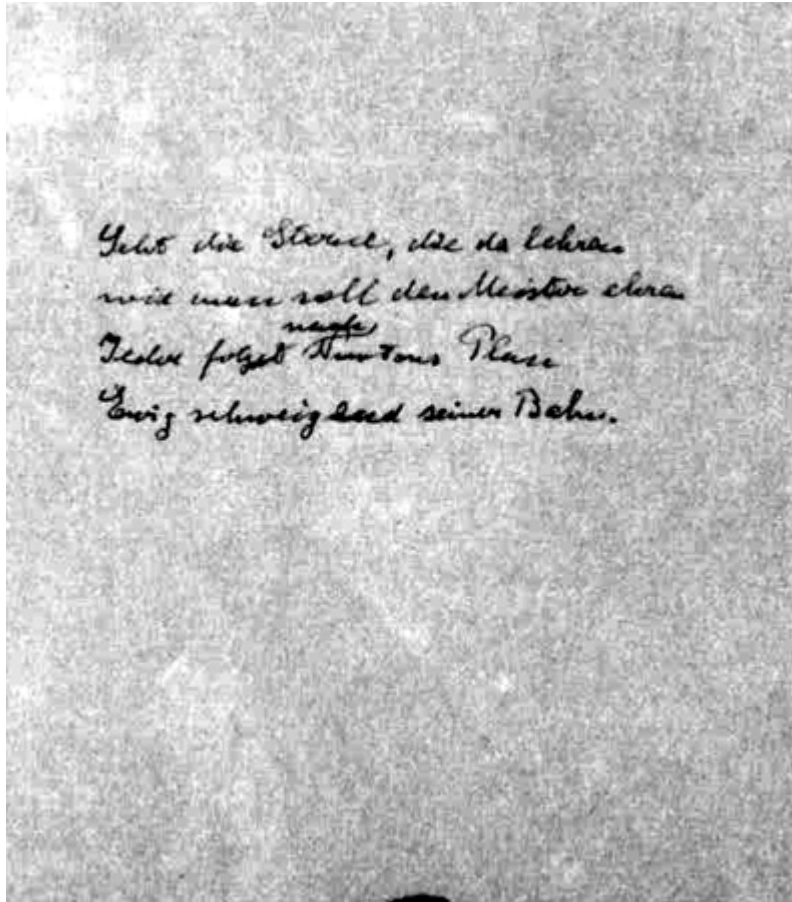 Seht die Sterne, die da lehren
wie man soll den Meister ehren
nach
Jeder folgt Newtons Plan
Ewig schweigend seiner Bahn.